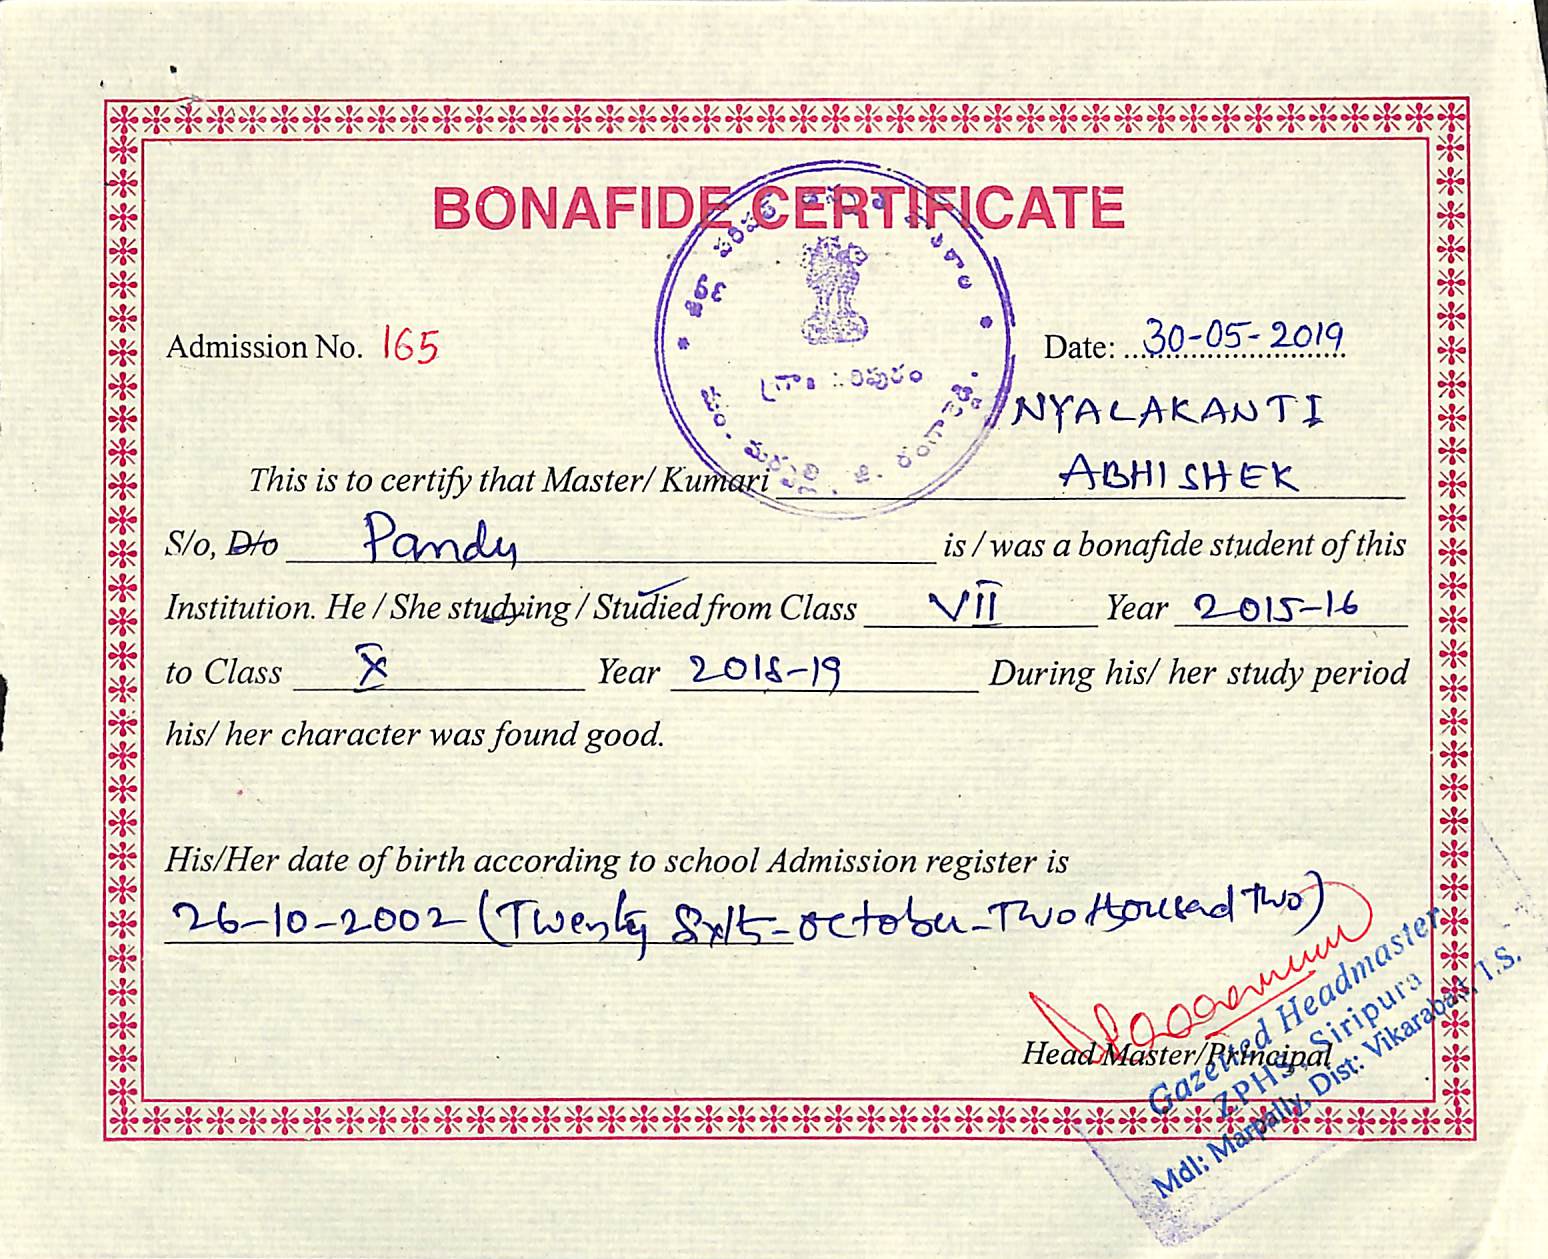 BONAFIDE CERTIFICATE
Admission No. 165
Date: 30-05-2019
NYALAKANTI
This is to certify that Master/ Kumari ABHISHEK
S/o, D/o Pandy is / was a bonafide student of this
Institution. He / She studying / Studied from Class VII Year 2015-16
to Class X Year 2018-19 During his/ her study period
his/ her character was found good.
His/Her date of birth according to school Admission register is
26-10-2002 (Twenty Sixth-October-Two thousand Two)
Head Master/Principal
Gazetted Headmaster
ZPHS, Siripura
Mdl: Marpally, Dist: Vikarabad, T.S.